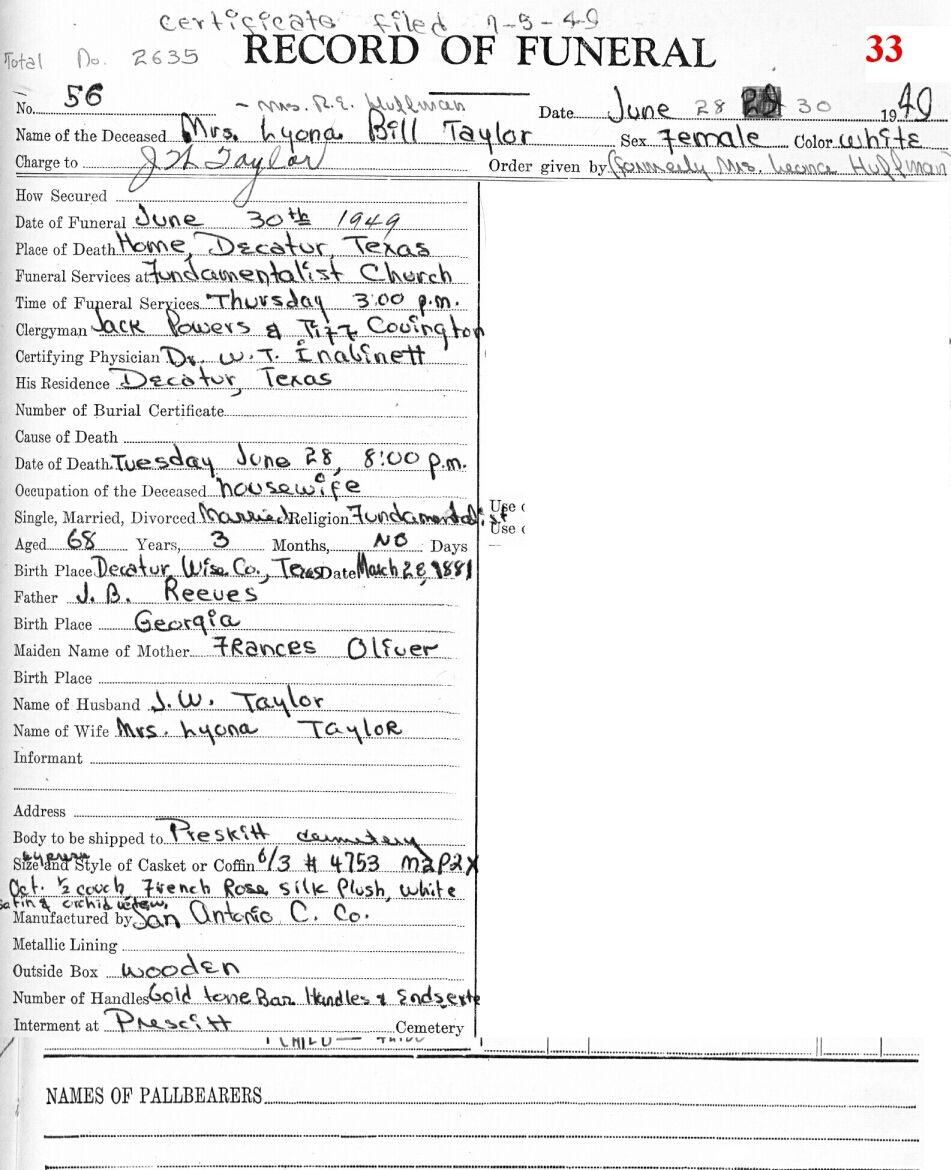 Certificate filed 7-5-49
Total No. 2635
RECORD OF FUNERAL
33
No. 56 - Mrs. R.E. Huffman Date June 28 30 1949
Name of the Deceased Mrs. Lyona Bill Taylor Sex Female Color White
Charge to J W Taylor Order given by (formerly Mrs. Leona Huffman
How Secured
Date of Funeral June 30th 1949
Place of Death Home, Decatur, Texas
Funeral Services at Fundamentalist Church
Time of Funeral Services Thursday 3:00 p.m.
Clergyman Jack Powers & Tiff Covington
Certifying Physician Dr. W.T. Inabinett
His Residence Decatur, Texas
Number of Burial Certificate
Cause of Death
Date of Death Tuesday June 28, 8:00 p.m.
Occupation of the Deceased housewife
Single, Married, Divorced Married Religion Fundamentalist
Use
Use
Aged 68 Years, 3 Months, No Days
Birth Place Decatur, Wise Co., Texas Date March 28, 1881
Father J. B. Reeves
Birth Place Georgia
Maiden Name of Mother Frances Oliver
Birth Place
Name of Husband J.W. Taylor
Name of Wife Mrs. Lyona Taylor
Informant
Address
Body to be shipped to Preskitt cemetery
Size and Style of Casket or Coffin 6/3 # 4753 M2P2X
Oct. 1/2 couch, French Rose silk Plush, white
satin & orchid
Manufactured by San Antonio C. Co.
Metallic Lining
Outside Box wooden
Number of Handles Gold tone Bar Handles &
Interment at Prescitt Cemetery
NAMES OF PALLBEARERS